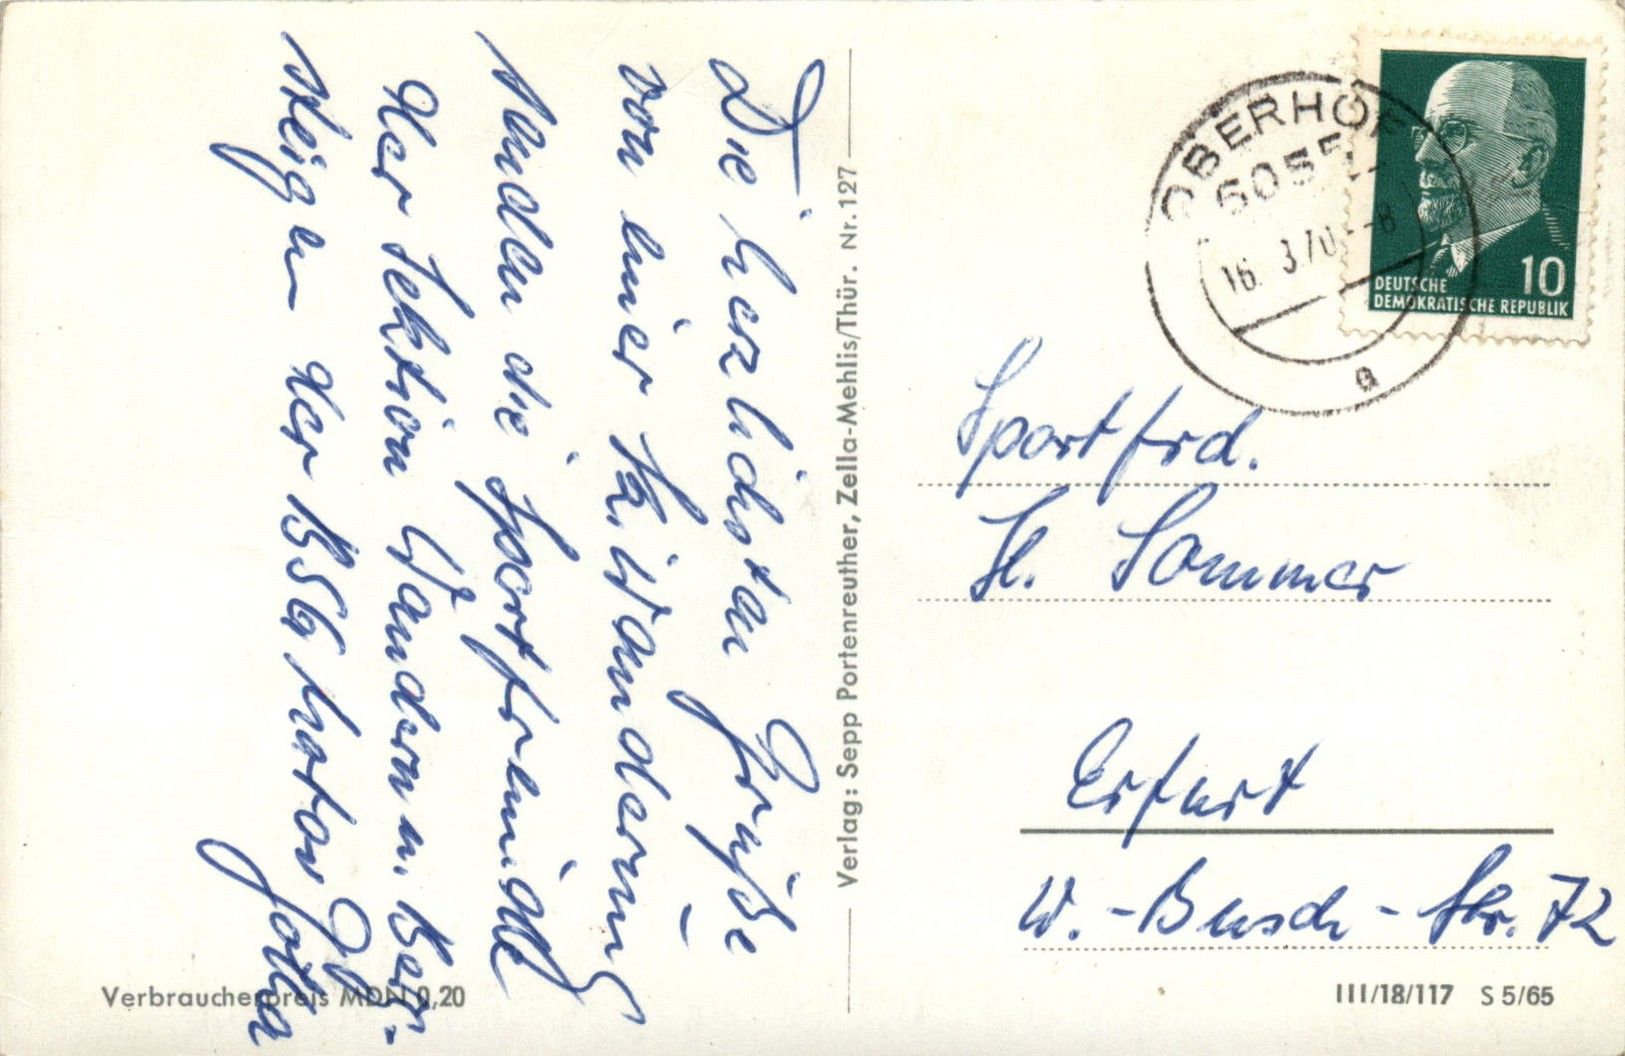 Die herzlichsten Grüße
von einer Skiwanderung
senden die Sportfreunde
der Sektion Wandern u. Berg-
steigen der BSG Motor Gotha
Verbraucherpreis MDN 0,20
Verlag: Sepp Portenreuther, Zella-Mehlis/Thür. Nr. 127
OBERHOF
6055
16. 3.70 - 8
a
10
DEUTSCHE
DEMOKRATISCHE REPUBLIK
Sportfrd.
H. Sommer
Erfurt
W.-Busch-Str. 72
III/18/117 S 5/65